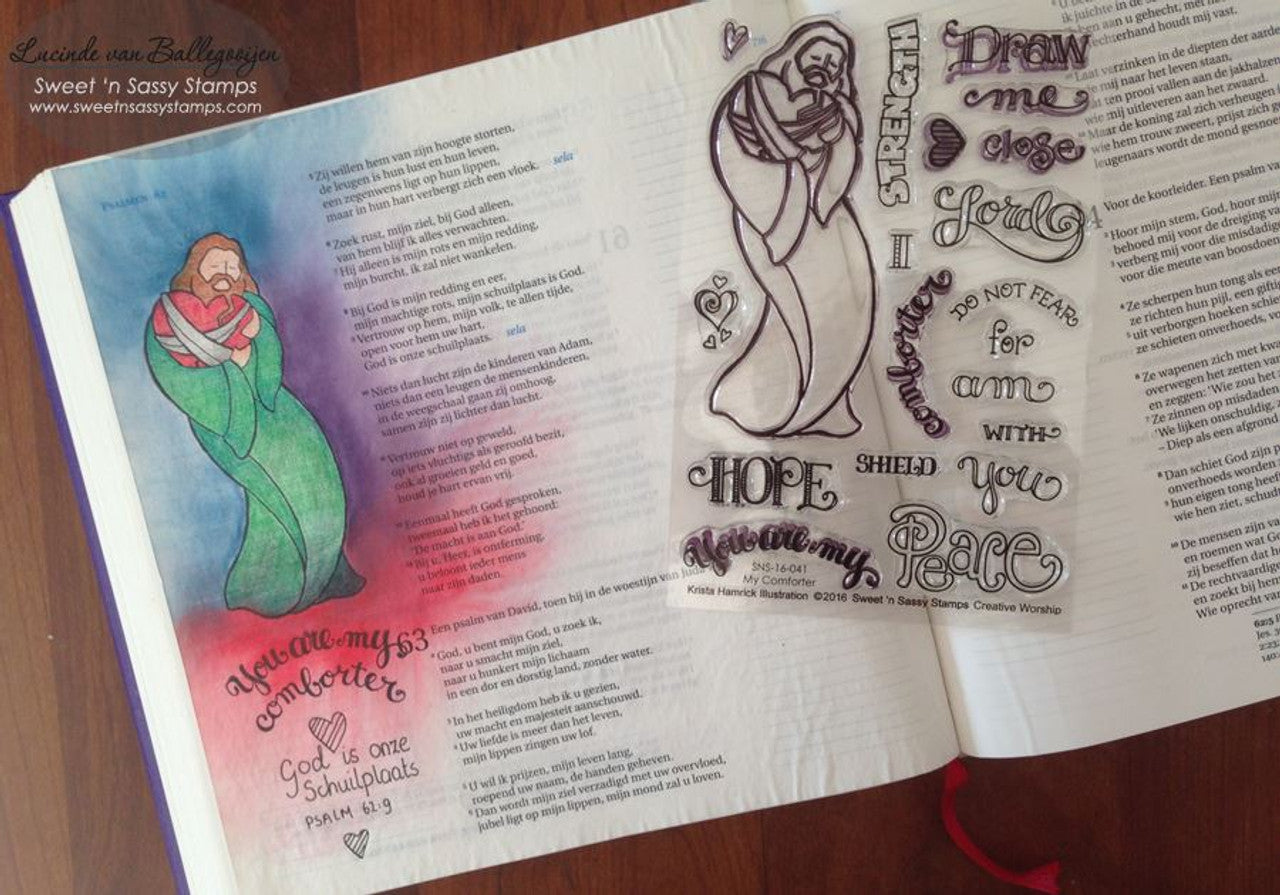 Lucinde van Ballegooijen
Sweet 'n Sassy Stamps
www.sweetnsassystamps.com
PSALMEN 62
⁵Zij willen hem van zijn hoogte storten,
de leugen is hun lust en hun leven,
een zegenwens ligt op hun lippen,
maar in hun hart verbergt zich een vloek. sela
⁶Zoek rust, mijn ziel, bij God alleen,
van hem blijf ik alles verwachten.
⁷Hij alleen is mijn rots en mijn redding,
mijn burcht, ik zal niet wankelen.
⁸Bij God is mijn redding en eer,
mijn machtige rots, mijn schuilplaats is God.
⁹Vertrouw op hem, mijn volk, te allen tijde,
open voor hem uw hart,
God is onze schuilplaats. sela
¹⁰Niets dan lucht zijn de kinderen van Adam,
niets dan een leugen de mensenkinderen,
in de weegschaal gaan zij omhoog,
samen zijn zij lichter dan lucht.
¹¹Vertrouw niet op geweld,
op iets vluchtigs als geroofd bezit,
ook al groeien geld en goed,
houd je hart ervan vrij.
¹²Eenmaal heeft God gesproken,
tweemaal heb ik het gehoord:
'De macht is aan God.'
¹³Bij u, Heer, is ontferming,
u beloont ieder mens
naar zijn daden.
63 Een psalm van David, toen hij in de woestijn van Juda
²God, u bent mijn God, u zoek ik,
naar u smacht mijn ziel,
naar u hunkert mijn lichaam
in een dor en dorstig land, zonder water.
³In het heiligdom heb ik u gezien,
uw macht en majesteit aanschouwd.
⁴Uw liefde is meer dan het leven,
mijn lippen zingen uw lof.
⁵U wil ik prijzen, mijn leven lang,
roepend uw naam, de handen geheven.
⁶Dan wordt mijn ziel verzadigd met uw overvloed,
jubel ligt op mijn lippen, mijn mond zal u loven.
You are my
comforter
God is onze
Schuilplaats
PSALM 62-9
61
STRENGTH
Draw
me
close
Lord
I
comforter
DO NOT FEAR
for
am
WITH
HOPE
SHIELD
You
You are my
Peace
SNS-16-041
My Comforter
Krista Hamrick Illustration ©2016 Sweet 'n Sassy Stamps Creative Worship
ik juichte in de
aan u gehecht, met
rechterhand houdt mij vast.
Laat verzinken in de diepten der aarde
mij naar het leven staan,
ten prooi vallen aan de jakhalzen
wie mij uitleveren aan het zwaard.
Maar de koning zal zich verheugen
wie hem trouw zweert, prijst zich
leugenaars wordt de mond gesnoerd
4
Voor de koorleider. Een psalm
²Hoor mijn stem, God, hoor mijn
behoed mij voor de dreiging van
³verberg mij voor de misdadige
voor de meute van boosdoeners
⁴Ze scherpen hun tong als een
ze richten hun pijl, een giftig
⁵uit verborgen hoeken
ze schieten onverhoeds,
⁶Ze wapenen zich met
overwegen het zetten van
en zeggen: 'Wie zou het
⁷Ze zinnen op misdaden
'We lijken onschuldig,
– Diep als een afgrond
⁸Dan schiet God zijn
onverhoeds worden
⁹hun eigen tong heeft
wie hen ziet, schudt
¹⁰De mensen zijn van
en roemen wat God
zij beseffen dat
¹¹De rechtvaardige
en zoekt bij hem
Wie oprecht van
62:5
Jes.
2:23
140: